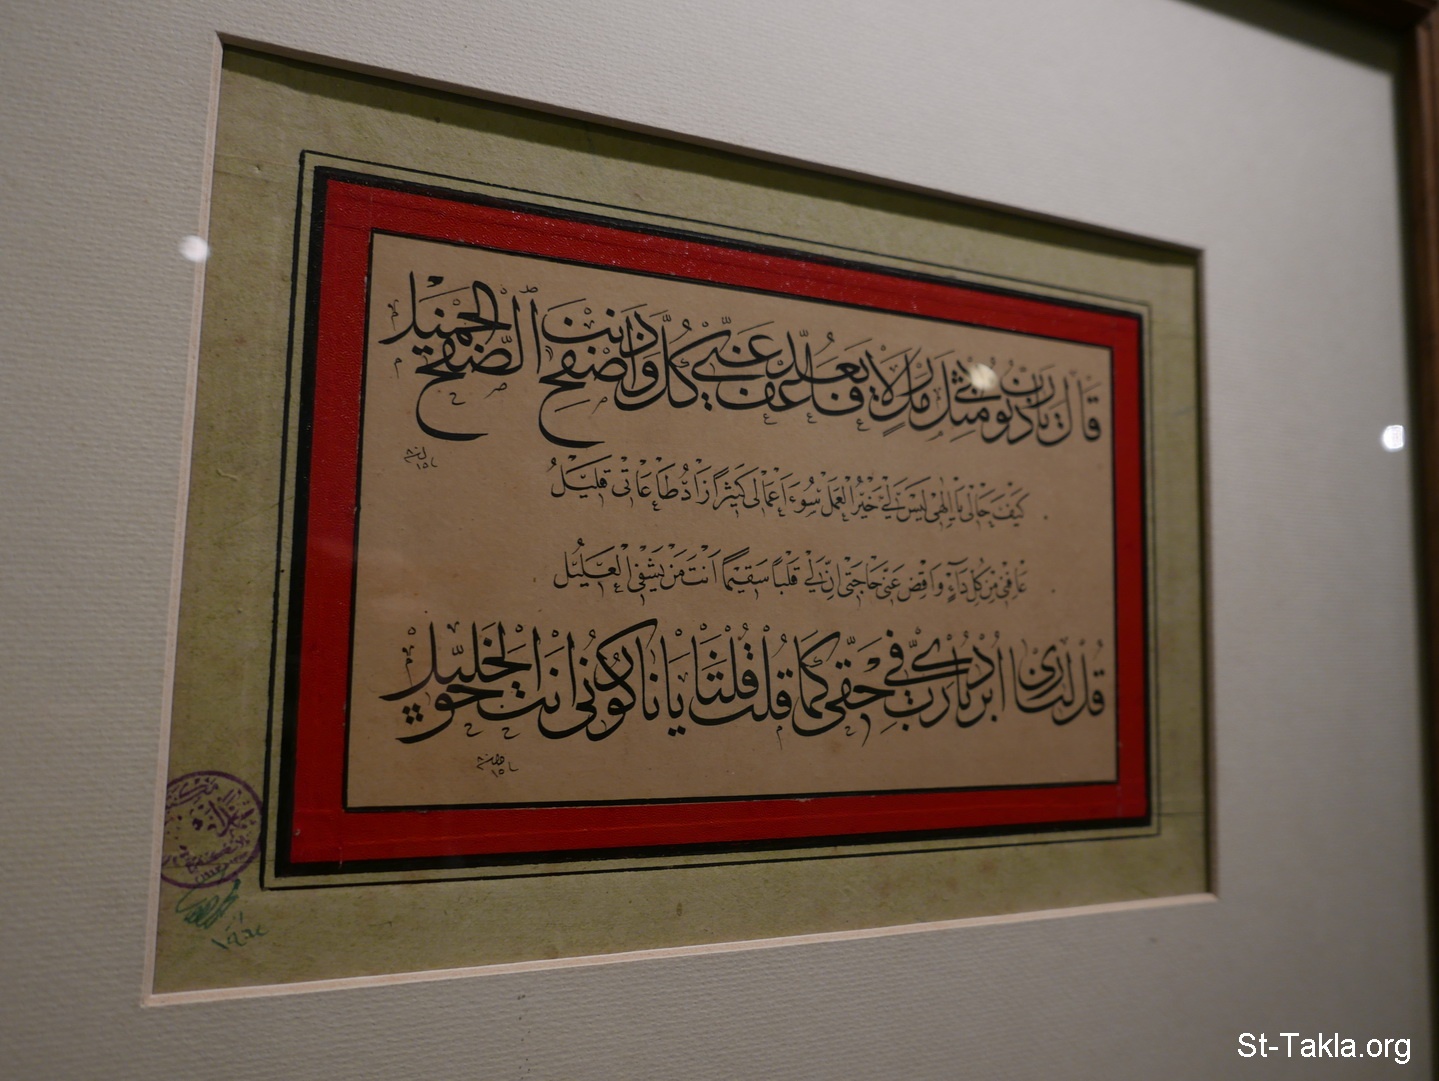 قال يا رب ذنوبي مثل رمل لا يعد فاعف عني كل ذنب واصفح الصفح الجميل
كَيْفَ حَالِي يَا إِلٰهِي لَيْسَ لِي خَيْرُ الْعَمَلْ سُوءُ أَعْمَالِي كَثِيرٌ زَادُ طَاعَاتِي قَلِيلُ
عَافِنِي مِنْ كُلِّ دَاءٍ وَاقْضِ عَنِّي حَاجَتِي إِنَّ لِي قَلْبًا سَقِيمًا أَنْتَ مَنْ يَشْفِي الْعَلِيلُ
قل لنار ابردي يا رب في حقي كما قلت قلنا يا نار كوني انت في حق الخليل
St-Takla.org